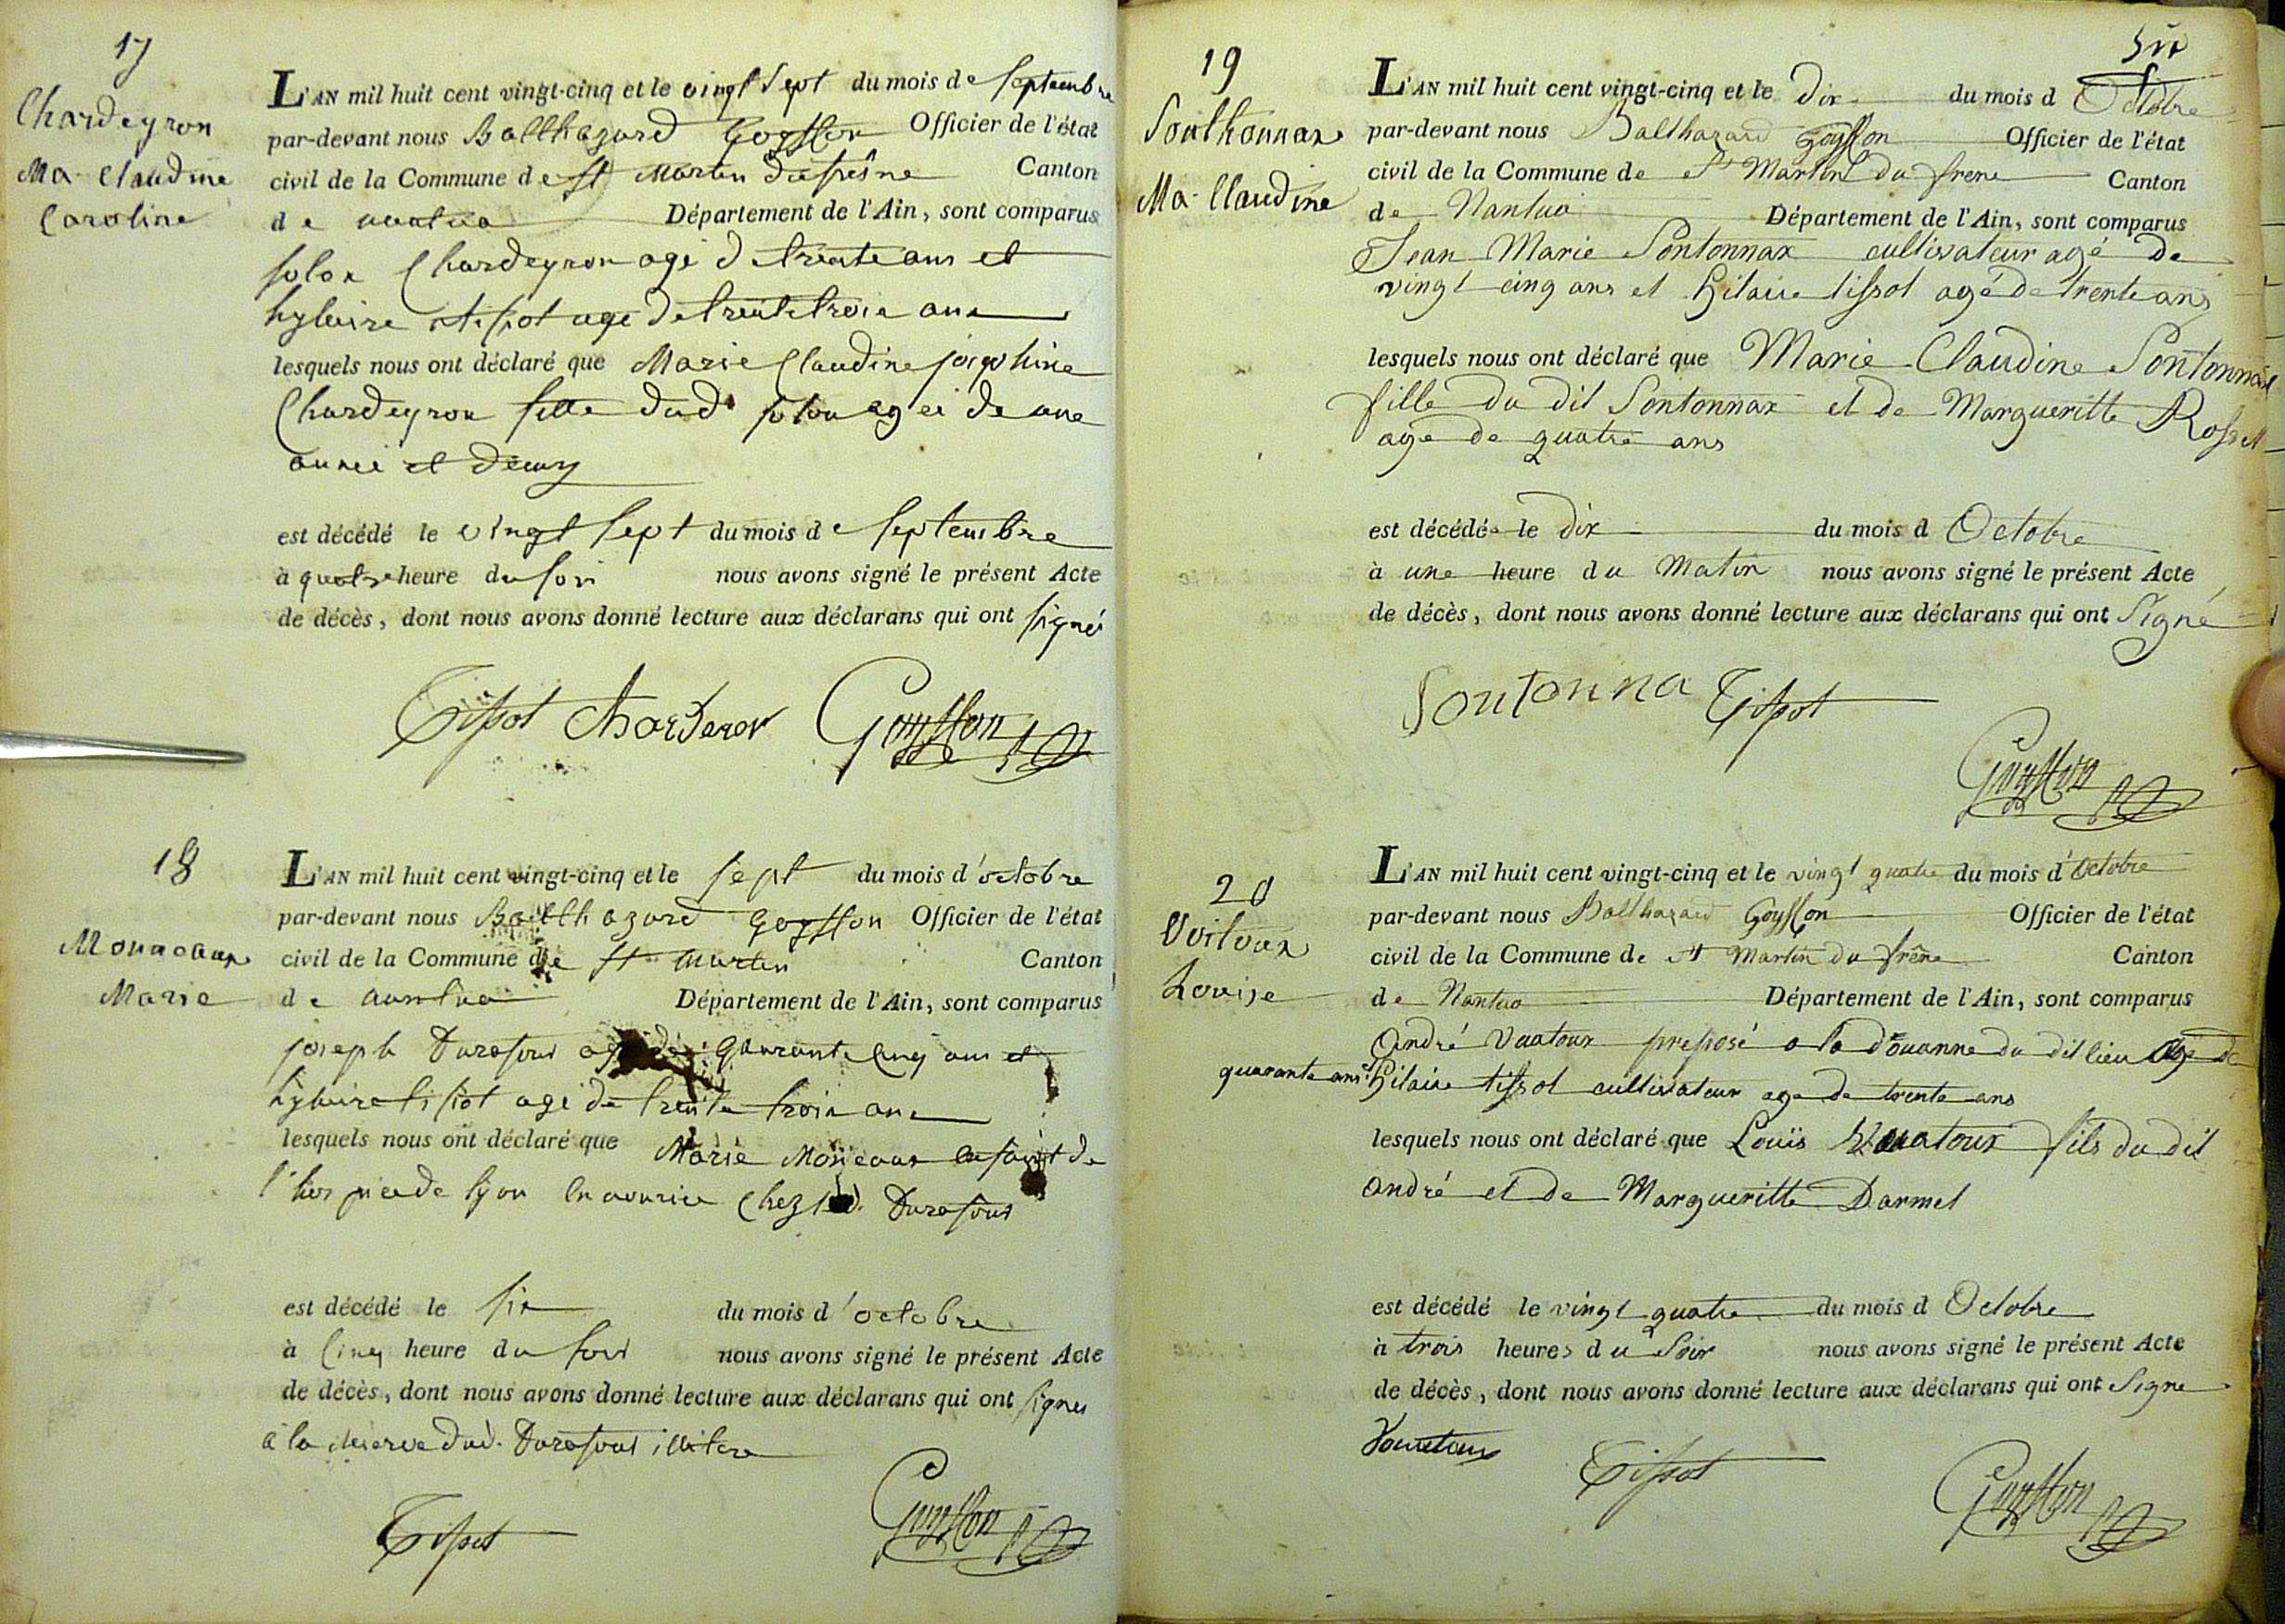 17
Chardeyron
Ma. Claudine
Caroline
L'AN mil huit cent vingt-cinq et le vingt sept du mois de septembre
par-devant nous Balthazard Goyffon Officier de l'état
civil de la Commune de st Martin du frêne Canton
de nantua Département de l'Ain, sont comparus
solon Chardeyron agé de trente ans et
hylaire tissot agé de trente trois ans
lesquels nous ont déclaré que Marie Claudine josephine
Chardeyron fille dud. solon agée de une
année et demy
est décédé le vingt sept du mois de septembre
à quatre heure du soir nous avons signé le présent Acte
de décès, dont nous avons donné lecture aux déclarans qui ont signés
Tissot Charderon Goyffon
18
Monaceaux
Marie
L'AN mil huit cent vingt-cinq et le sept du mois d'octobre
par-devant nous Balthazard Goyffon Officier de l'état
civil de la Commune de st Martin Canton
de nantua Département de l'Ain, sont comparus
joseph Durafour agé de quarante cinq ans et
hylaire tissot agé de trente trois ans
lesquels nous ont déclaré que Marie Monceaux enfant de
l'hospice de lyon en nourice chez led. Durafour
est décédé le six du mois d'octobre
à Cinq heure du soir nous avons signé le présent Acte
de décès, dont nous avons donné lecture aux déclarans qui ont signés
a la réserve dud. Durafour illitéré
Tissot Goyffon
19
Southonnax
Ma. Claudine
L'AN mil huit cent vingt-cinq et le dix du mois d Octobre
par-devant nous Balthazard Goyffon Officier de l'état
civil de la Commune de St Martin du frene Canton
de Nantua Département de l'Ain, sont comparus
Jean Marie Sontonnax cultivateur agé de
vingt cinq ans et hilaire tissot agé de trente ans
lesquels nous ont déclaré que Marie Claudine Sontonnax
fille du dit Sontonnax et de Margueritte Rosset
age de quatre ans
est décédée le dix du mois d Octobre
à une heure du Matin nous avons signé le présent Acte
de décès, dont nous avons donné lecture aux déclarans qui ont Signé
Soutonna Tissot
Goyffon
20
Louise
L'AN mil huit cent vingt-cinq et le vingt quatre du mois d'Octobre
par-devant nous Balthazard Goyffon Officier de l'état
civil de la Commune de st Martin du frêne Canton
de Nantua Département de l'Ain, sont comparus
André Vuatoux preposé a la douanne du dit lieu agé de
quarante ans et hilaire tissot cultivateur age de trente ans
lesquels nous ont déclaré que Louis Vuatoux fils du dit
andré et de Margueritte Darmet
est décédé le vingt quatre du mois d Octobre
à trois heures du Soir nous avons signé le présent Acte
de décès, dont nous avons donné lecture aux déclarans qui ont Signe
Tissot Goyffon